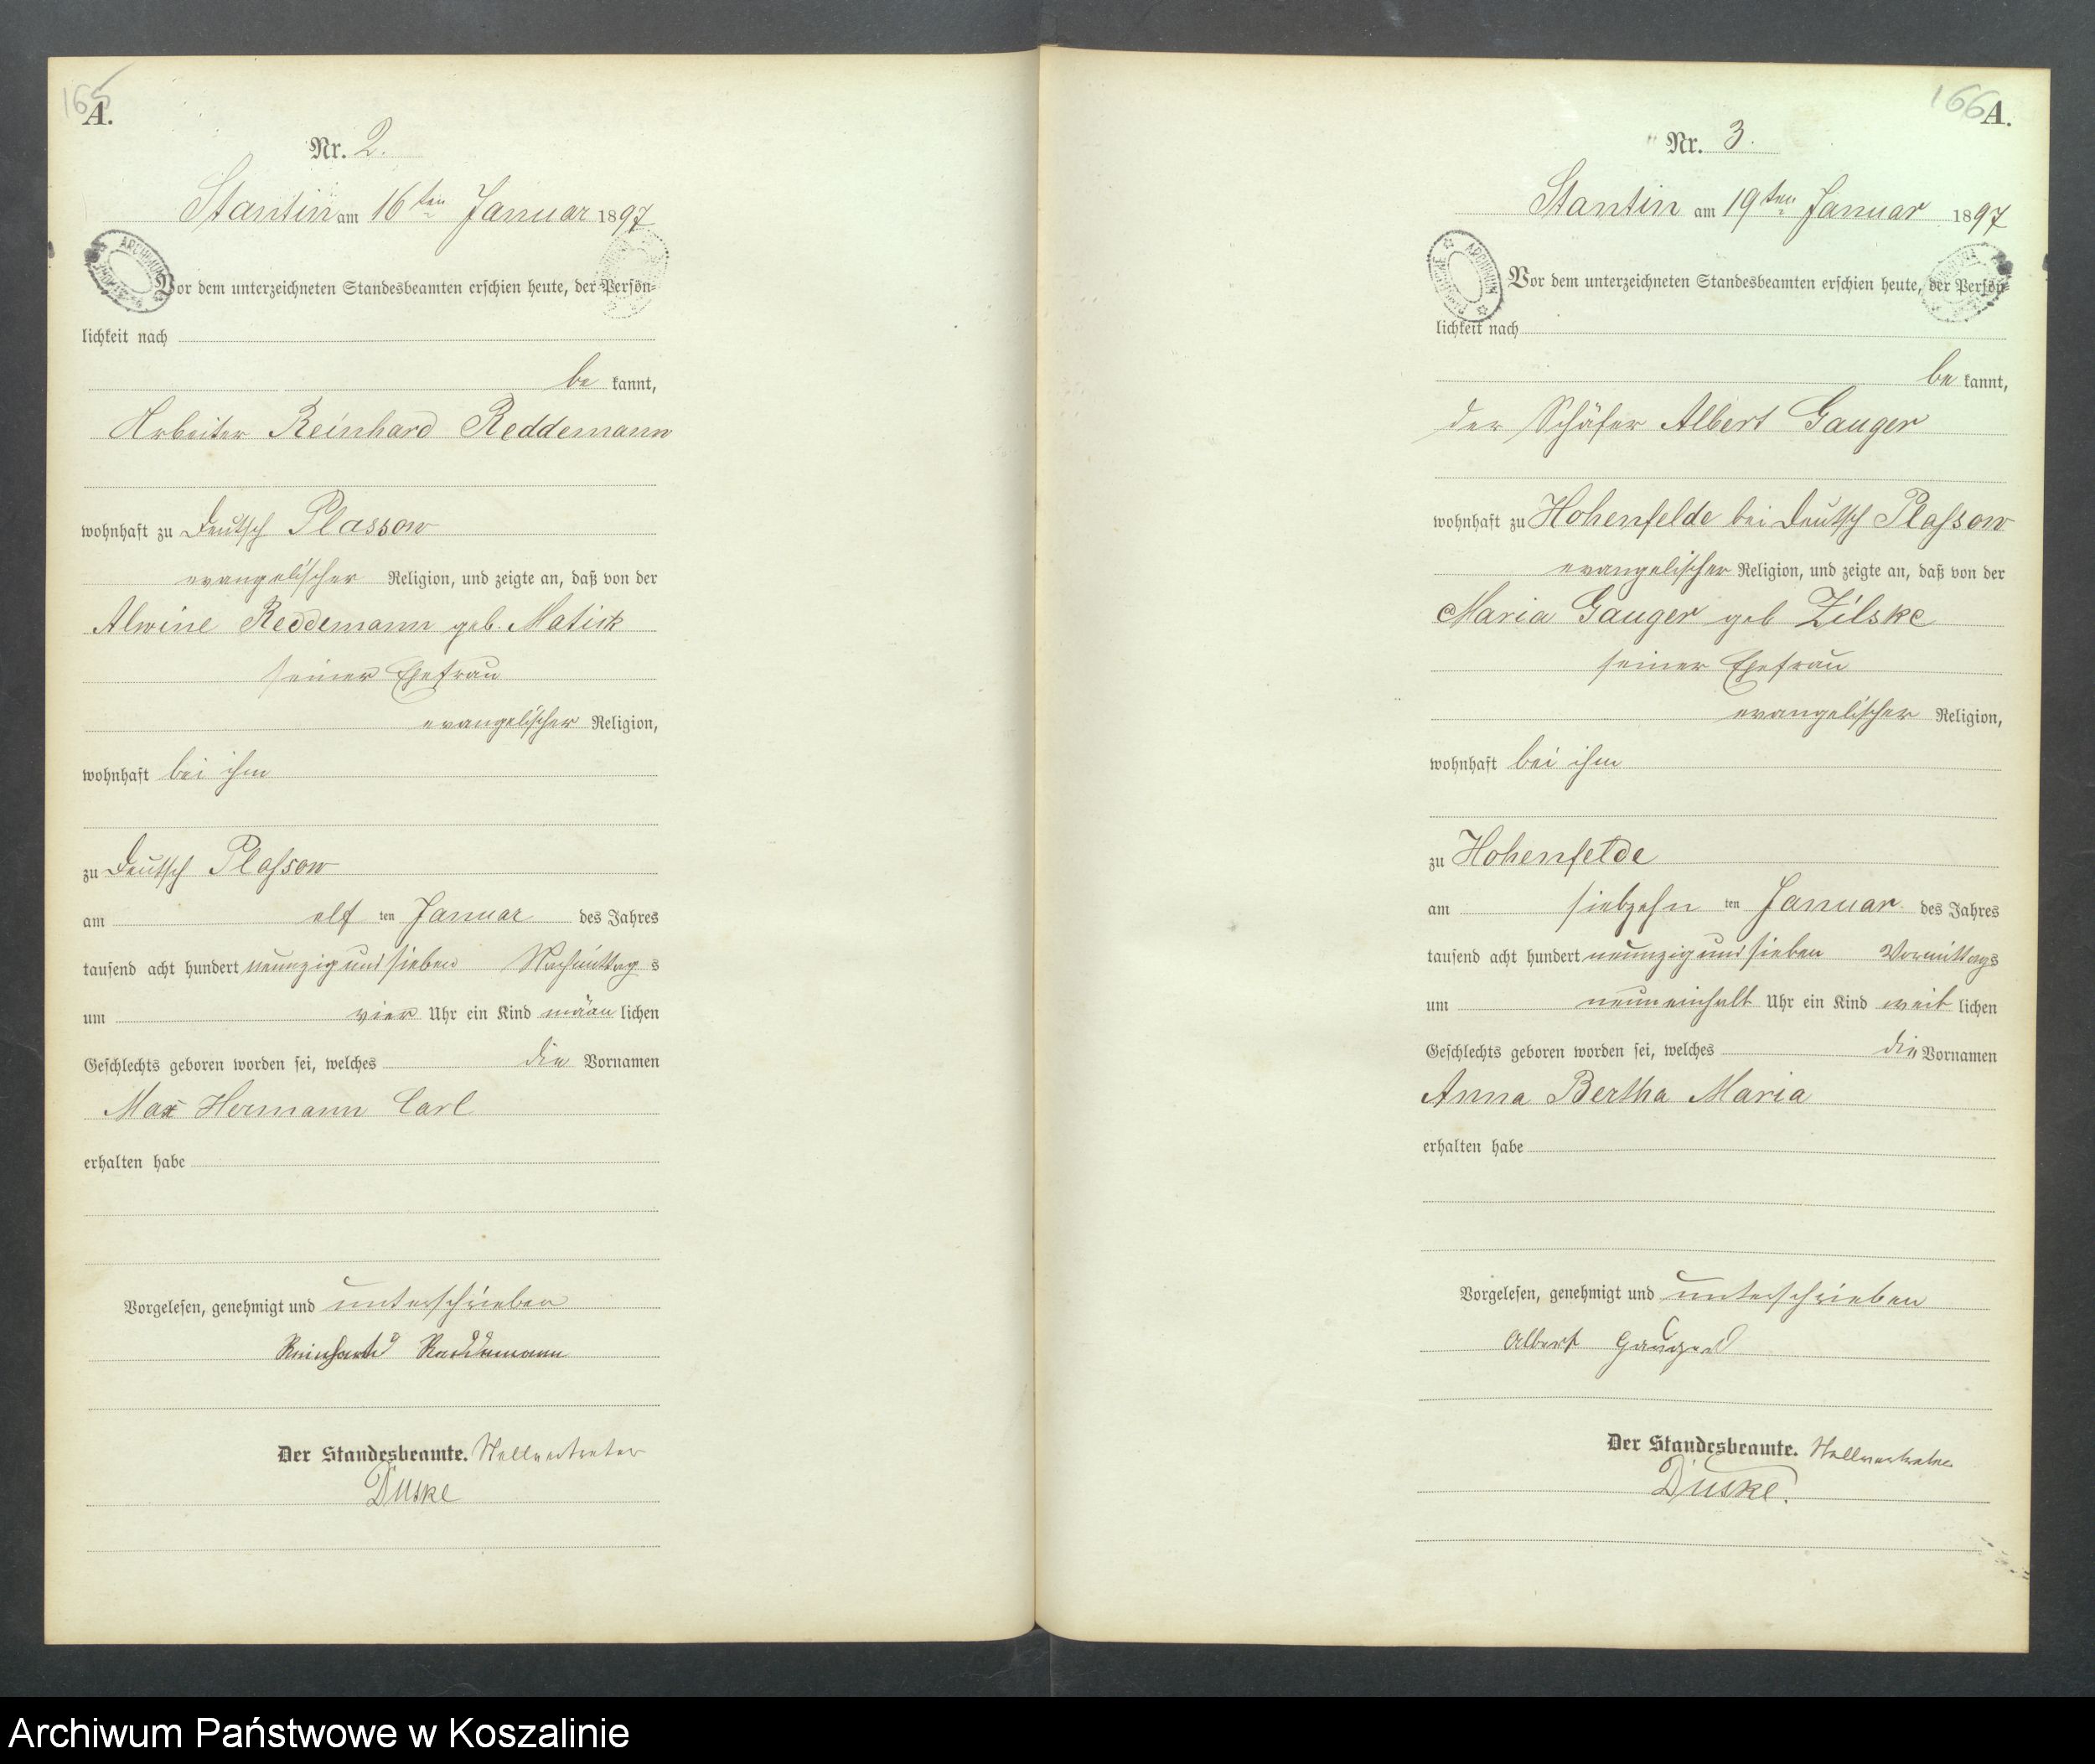 165
A.
Nr. 2.
Stantin am 16ten Januar 1897
Vor dem unterzeichneten Standesbeamten erschien heute, der Persön-
lichkeit nach
be kannt,
Arbeiter Reinhard Reddemann
wohnhaft zu Deutsch Plassow
evangelischer Religion, und zeigte an, daß von der
Alwine Reddemann geb. Matick
seiner Ehefrau
evangelischer Religion,
wohnhaft bei ihm
zu Deutsch Plassow
am elf ten Januar des Jahres
tausend acht hundert neunzig und sieben Nachmittag s
um vier Uhr ein Kind männ lichen
Geschlechts geboren worden sei, welches die Vornamen
Max Hermann Carl
erhalten habe
Vorgelesen, genehmigt und unterschrieben
Reinhard Reddemann
Der Standesbeamte. Stellvertreter
Duske
166 A.
Nr. 3.
Stantin am 19ten Januar 1897
ARCHIWUM
Vor dem unterzeichneten Standesbeamten erschien heute, der Persön-
lichkeit nach
be kannt,
der Schäfer Albert Gauger
wohnhaft zu Hohenfelde bei Deutsch Plassow
evangelischer Religion, und zeigte an, daß von der
Maria Gauger geb Zilske
seiner Ehefrau
evangelischer Religion,
wohnhaft bei ihm
zu Hohenfelde
am siebzehn ten Januar des Jahres
tausend acht hundert neunzig und sieben Vormittags
um neuneinhalb Uhr ein Kind weib lichen
Geschlechts geboren worden sei, welches die Vornamen
Anna Bertha Maria
erhalten habe
Vorgelesen, genehmigt und unterschrieben
Albert Gauger
Der Standesbeamte. Stellvertreter
Duske.
Archiwum Państwowe w Koszalinie